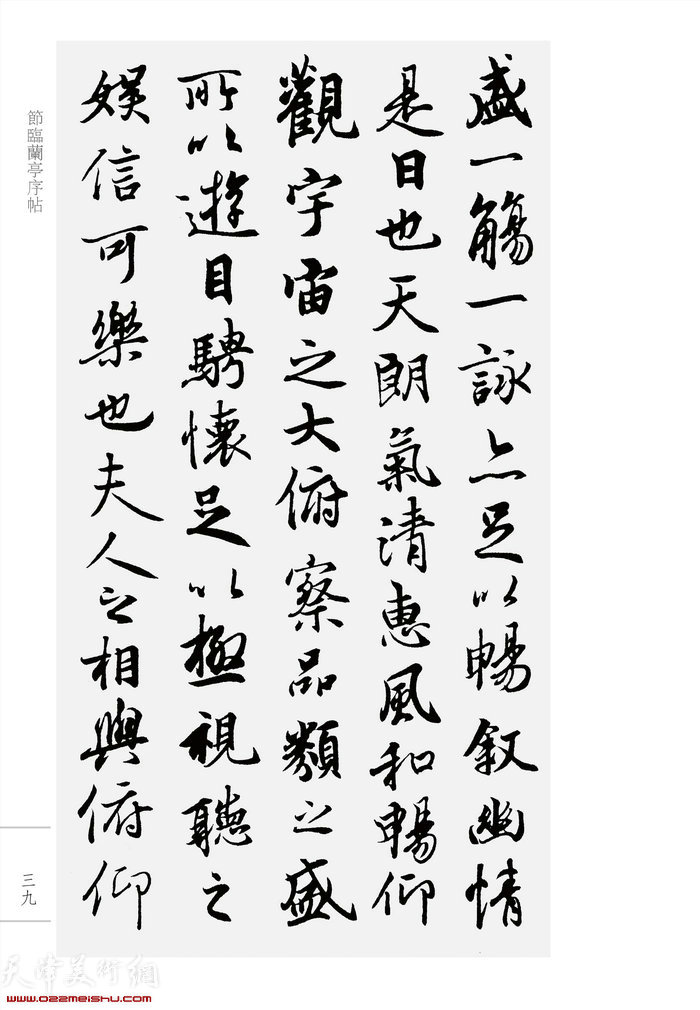 盛一觴一詠亦足以暢敘幽情
是日也天朗氣清惠風和暢仰
觀宇宙之大俯察品類之盛
所以遊目騁懷足以極視聽之
娛信可樂也夫人之相與俯仰
節臨蘭亭序帖
三九
天津美術網
www.022meishu.com